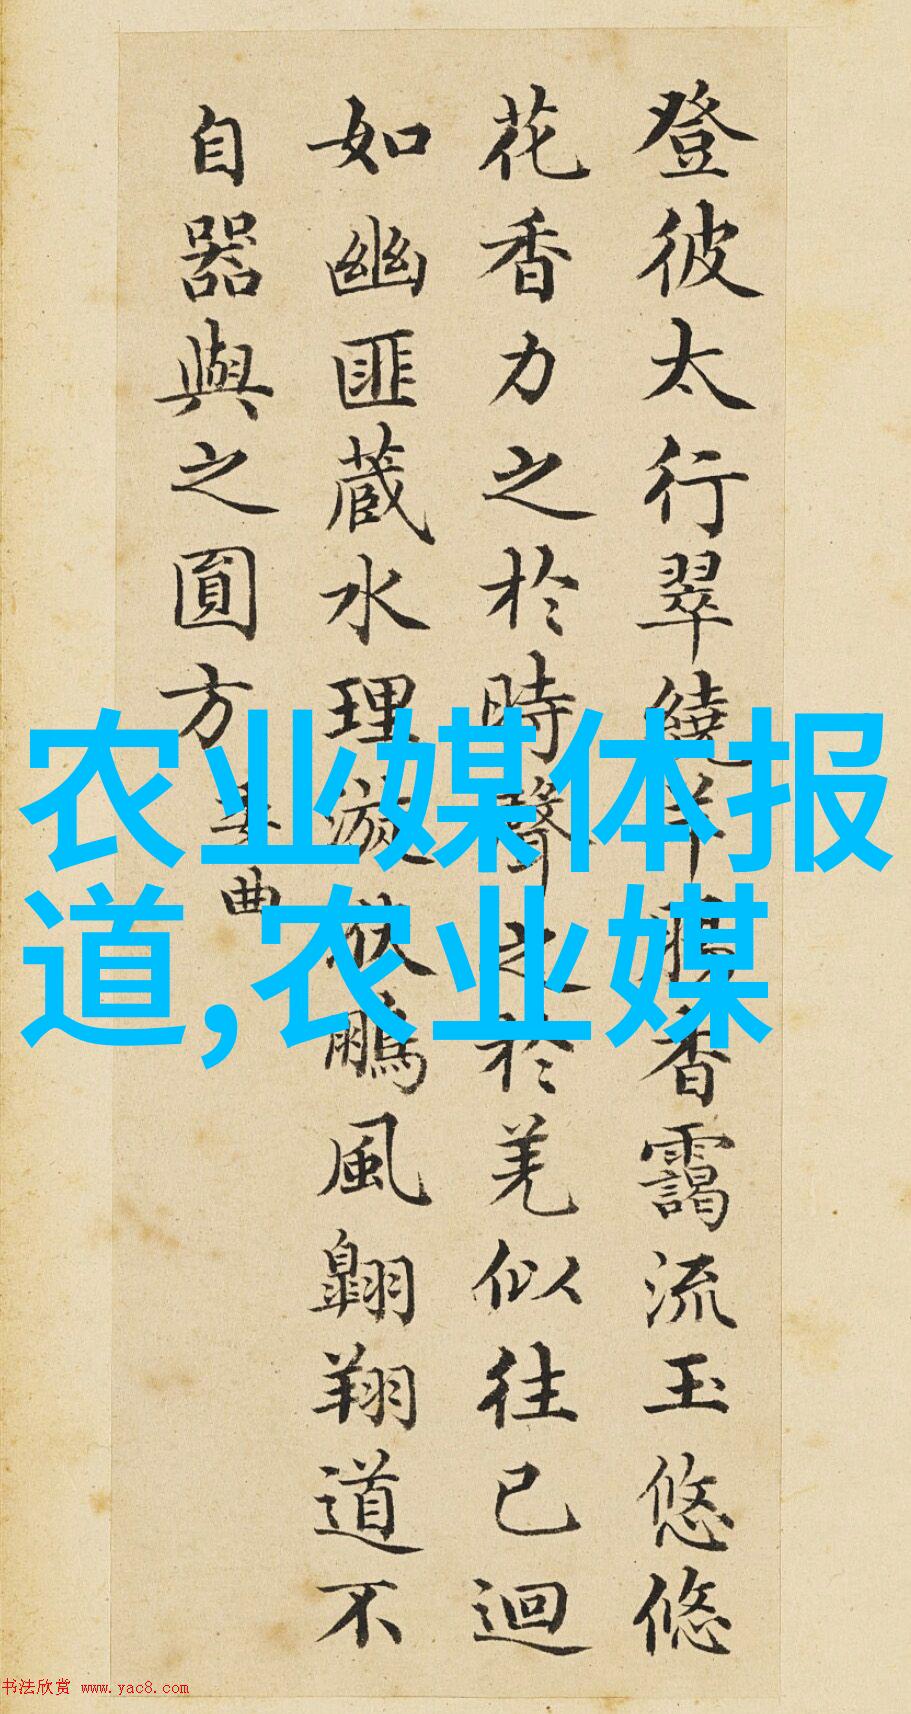 登彼太行翠繞羊腸杳靄流玉悠悠
花香力之於時聲之於羌似往已迴
如幽匪藏水理漩洑鵬風翺翔道不
自器與之圓方
委曲
农业媒体报
道,农业媒
书法欣赏 www.yac8.com